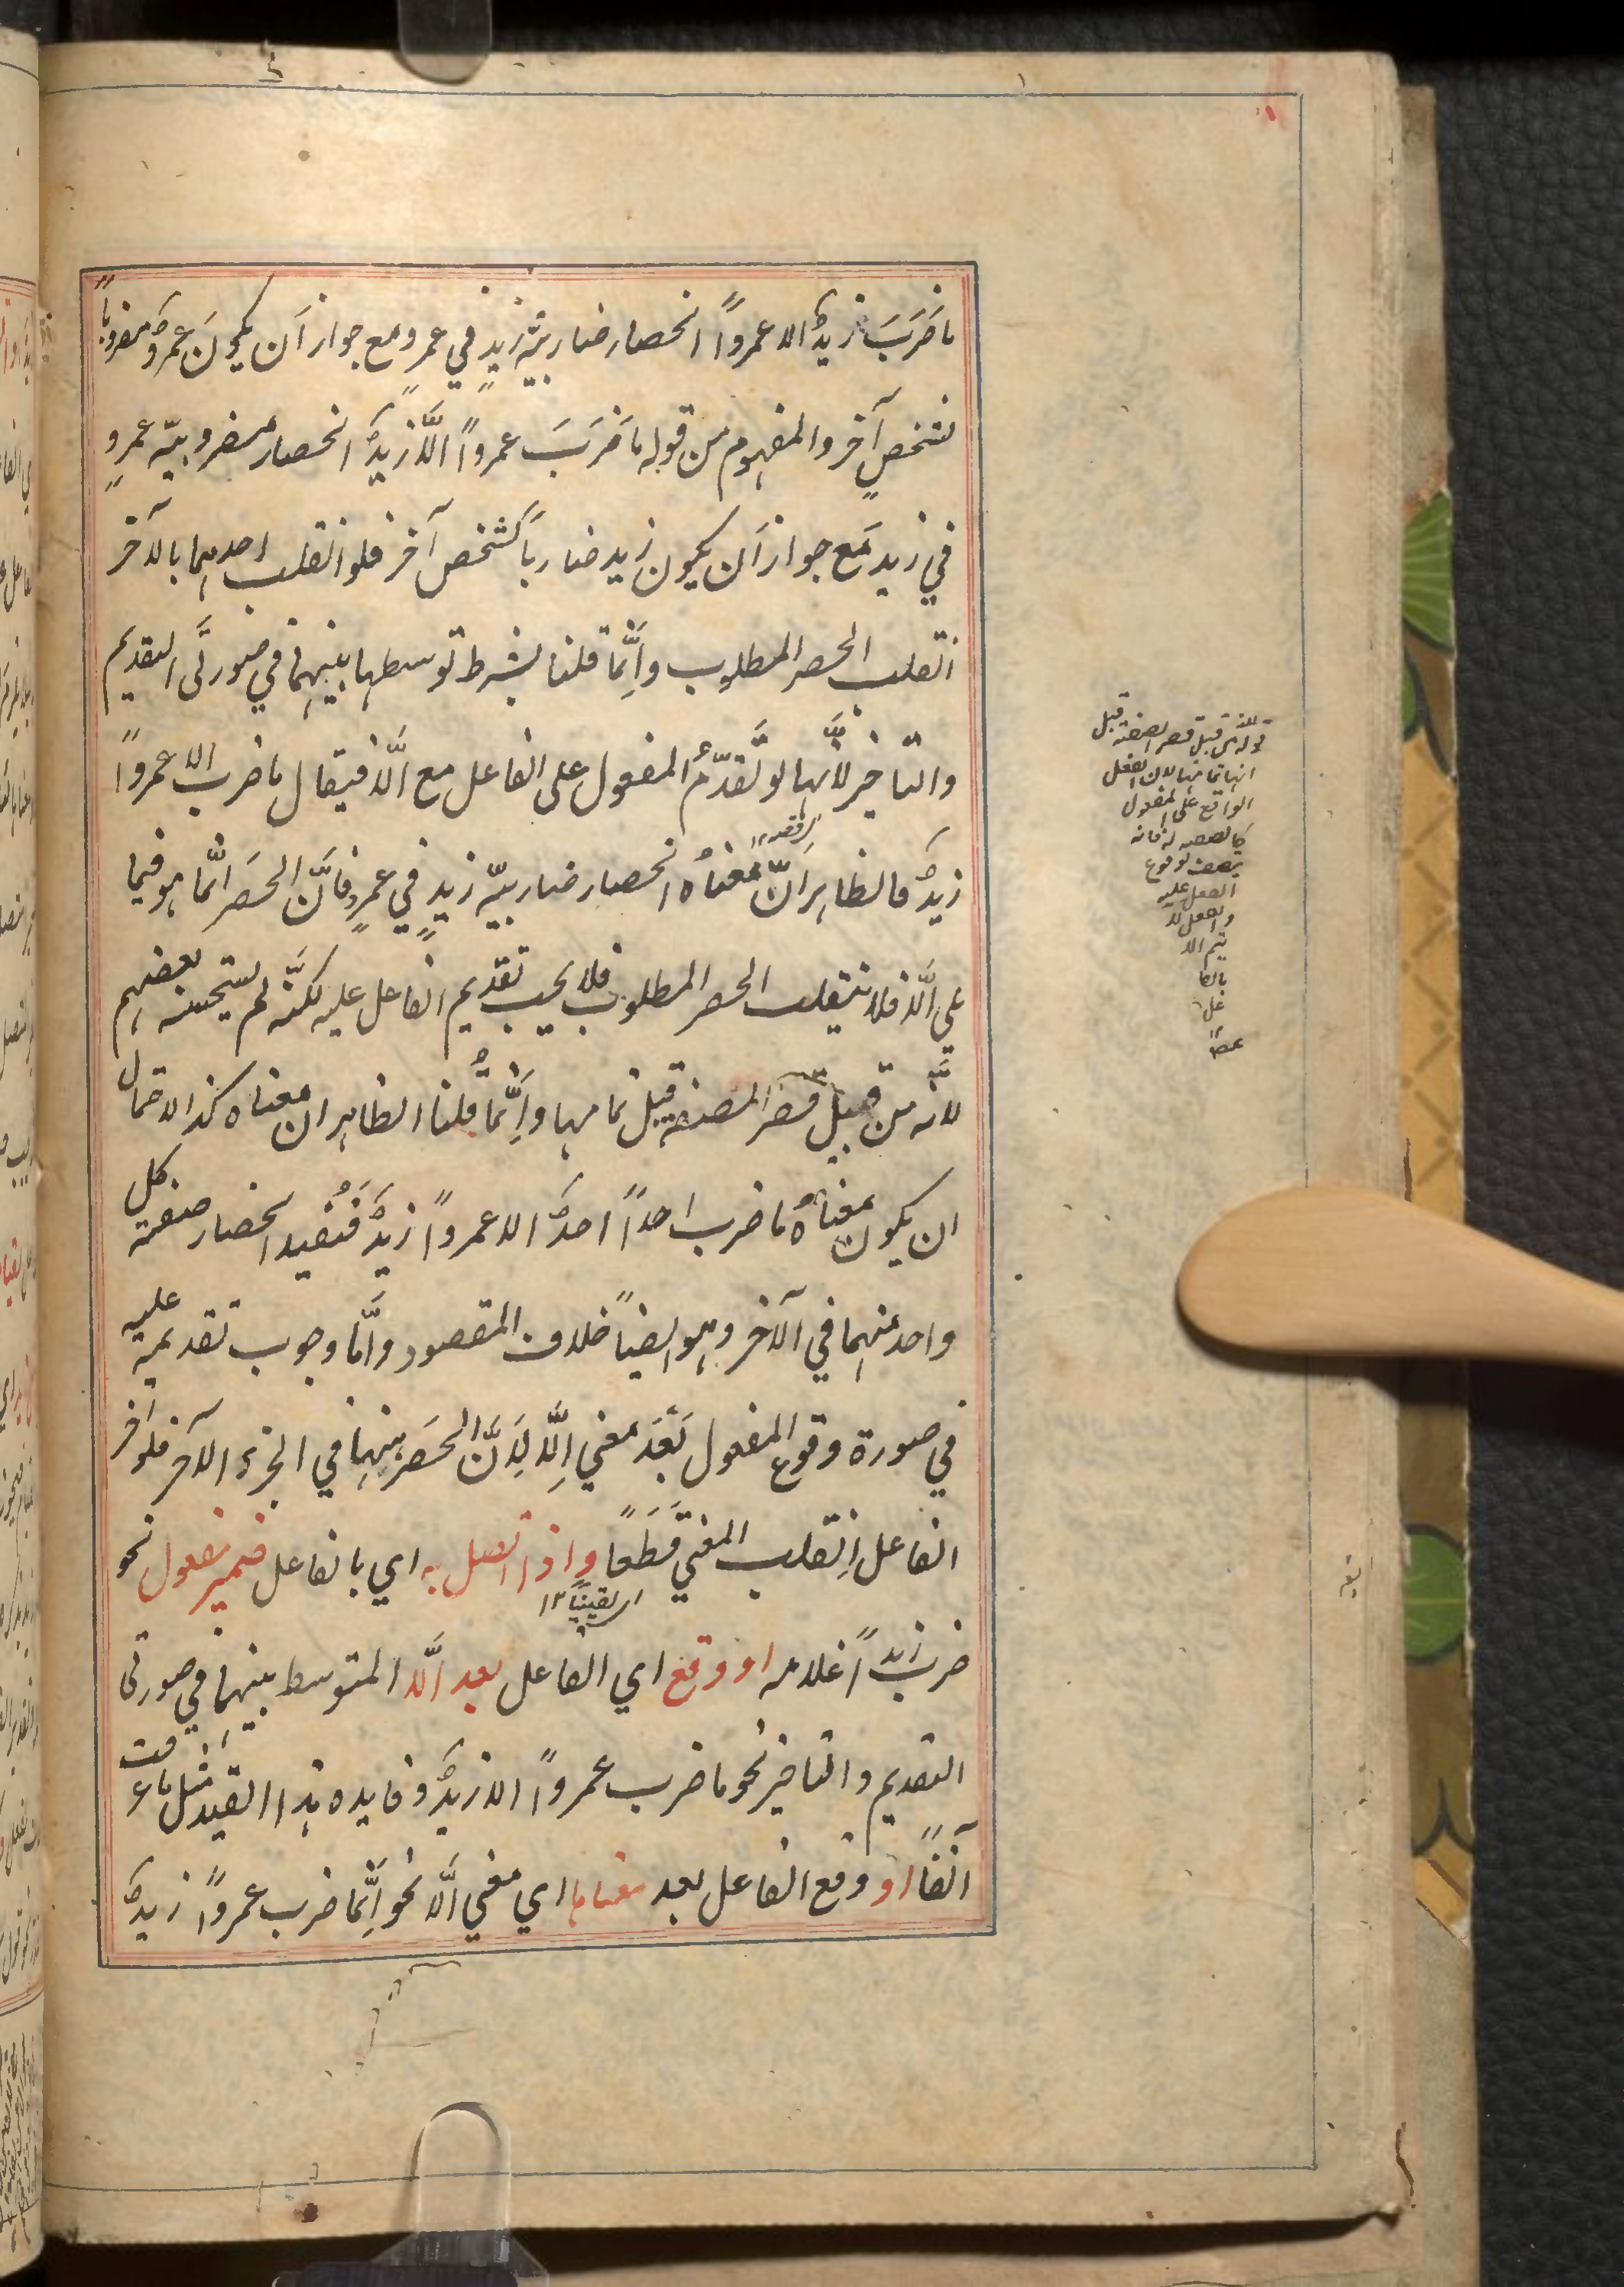 ما ضَرَبَ زيدٌ الا عمرواً انحصار ضاربيّة زيدٍ في عمرٍو مع جواز اَن يكونَ عمرٌو مضروباً
لشخصٍ آخر والمفهوم من قوله ما ضَرَبَ عمرواً الَّا زيدٌ انحصار مضروبيّة عمرٍو
في زيد مَع جواز اَن يكون زيد ضارباً لشخص آخر فلو انقلب احدهما بالآخر
انقلب الحصر المطلوب واِنَّما قلنا بشرط توسطها بينهما في صورتَى التقديم
والتاخير لأنّها لو تَقدّمُ المفعول على الفاعل مع الَّا فيقال ما ضرب الا عمرواً
زيدٌ فالظاهر انَّ معناهُ انحصار ضاربيّة زيدٍ في عمرٍو فانَّ الحصَر انَّما هو فيما
يلي الَّا فلا ينقلب الحصر المطلوب فلا يجب تقديم الفاعل عليه لكنَّه لم يستحسنه بعضهم
لانَّه من قبيل قصر الصفة قبل تمامها واِنَّما قُلنا الظاهر ان معناه كذا لاحتمال
ان يكون معناهُ ما ضرب احداً احدٌ الا عمرواً زيدٌ فَتُفيد انحصار صفة كل
واحد منهما في الآخر وهو ايضاً خلاف المقصود وامَّا وجوب تقديمه عليه
في صورة وقوع المفعول بَعْدَ معنى اِلَّا لِاَنَّ الحصَر ههنا في الجزء الآخر فلو اخر
الفاعل اِنقلب المعنى قَطَعًا واذا اتصل به اي بالفاعل ضمير مفعول نحو
اى يقيناً ١٢
ضرب زيداً غلامه او وقع اي الفاعل بعد الَّا المتوسط بينهما في صورتى
التقديم والتاخير نحو ما ضرب عمرواً الا زيدٌ وفايده هذا القيد مثل ما عرفت
آنفًا او وقع الفاعل بعد معناها اي معني الَّا نحو اِنَّما ضرب عمرواً زيدٌ
قوله من قبيل قصر الصفة قبل
تمامها لان الفعل
الواقع على المفعول